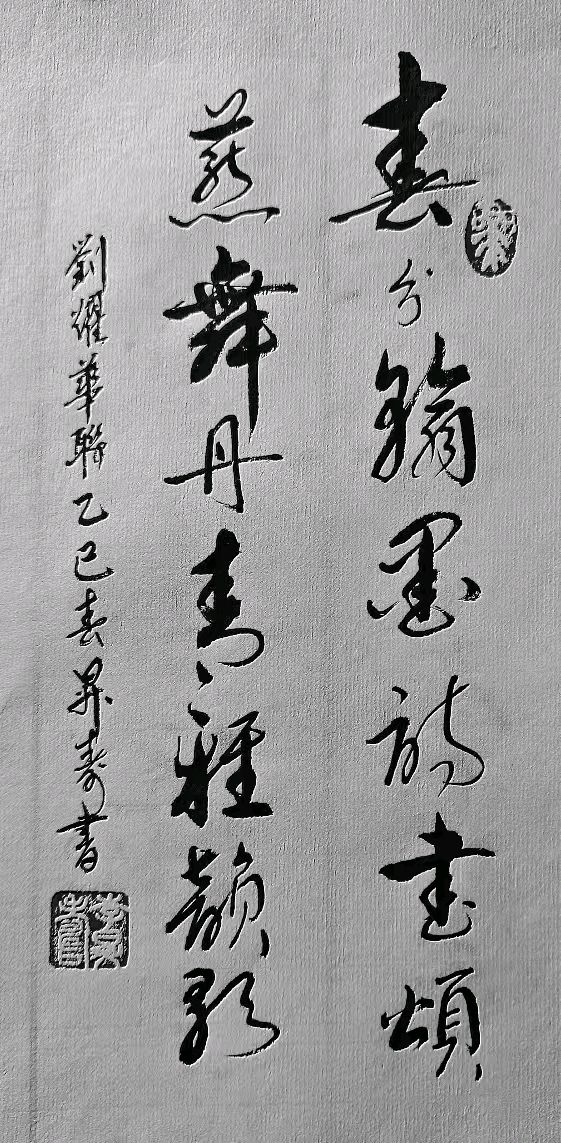 春分翰墨詩書頌
燕舞丹青雅韻歌
劉耀華聯乙巳春昇壽書